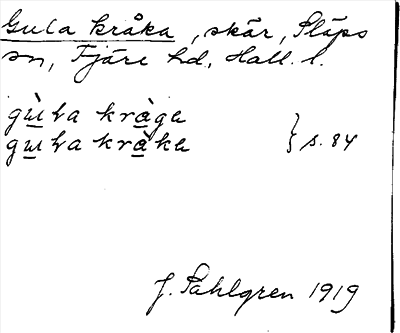 Gula kråka, skär, Släps
sn, Fjäre hd, Hall. l.
gùla kràga
gula kràka } s. 84
J. Sahlgren 1919